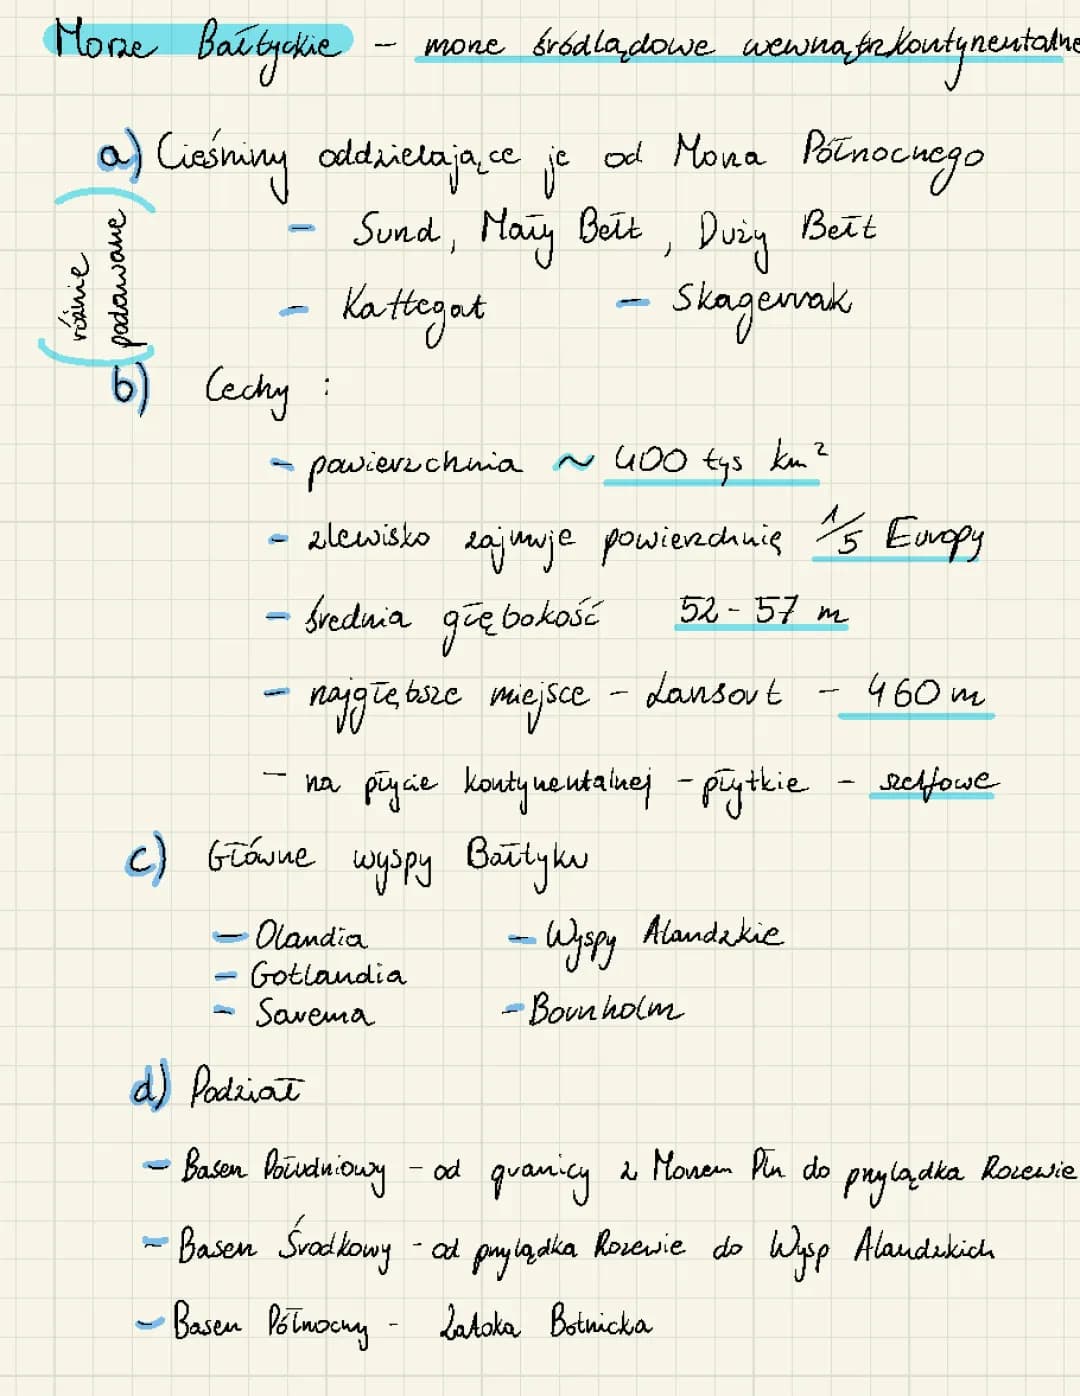 Morze Bałtyckie - morze śródlądowe wewnątrzkontynentalne
a) Cieśniny oddzielające je od Morza Północnego
(różnie podawane)
- Sund, Mały Bełt, Duży Bełt
- Kattegat - Skagerrak
b) Cechy :
- powierzchnia ~ 400 tys km²
- zlewisko zajmuje powierzchnię 1/5 Europy
- średnia głębokość 52 - 57 m
- najgłębsze miejsce - Lansort - 460 m
- na płycie kontynentalnej - płytkie - szelfowe
c) Główne wyspy Bałtyku
- Olandia - Wyspy Alandzkie
- Gotlandia
- Sarema - Bornholm
d) Podział
- Basen Południowy - od granicy z Morzem Płn do przylądka Rozewie
- Basen Środkowy - od przylądka Rozewie do Wysp Alandzkich
- Basen Północny - Zatoka Botnicka